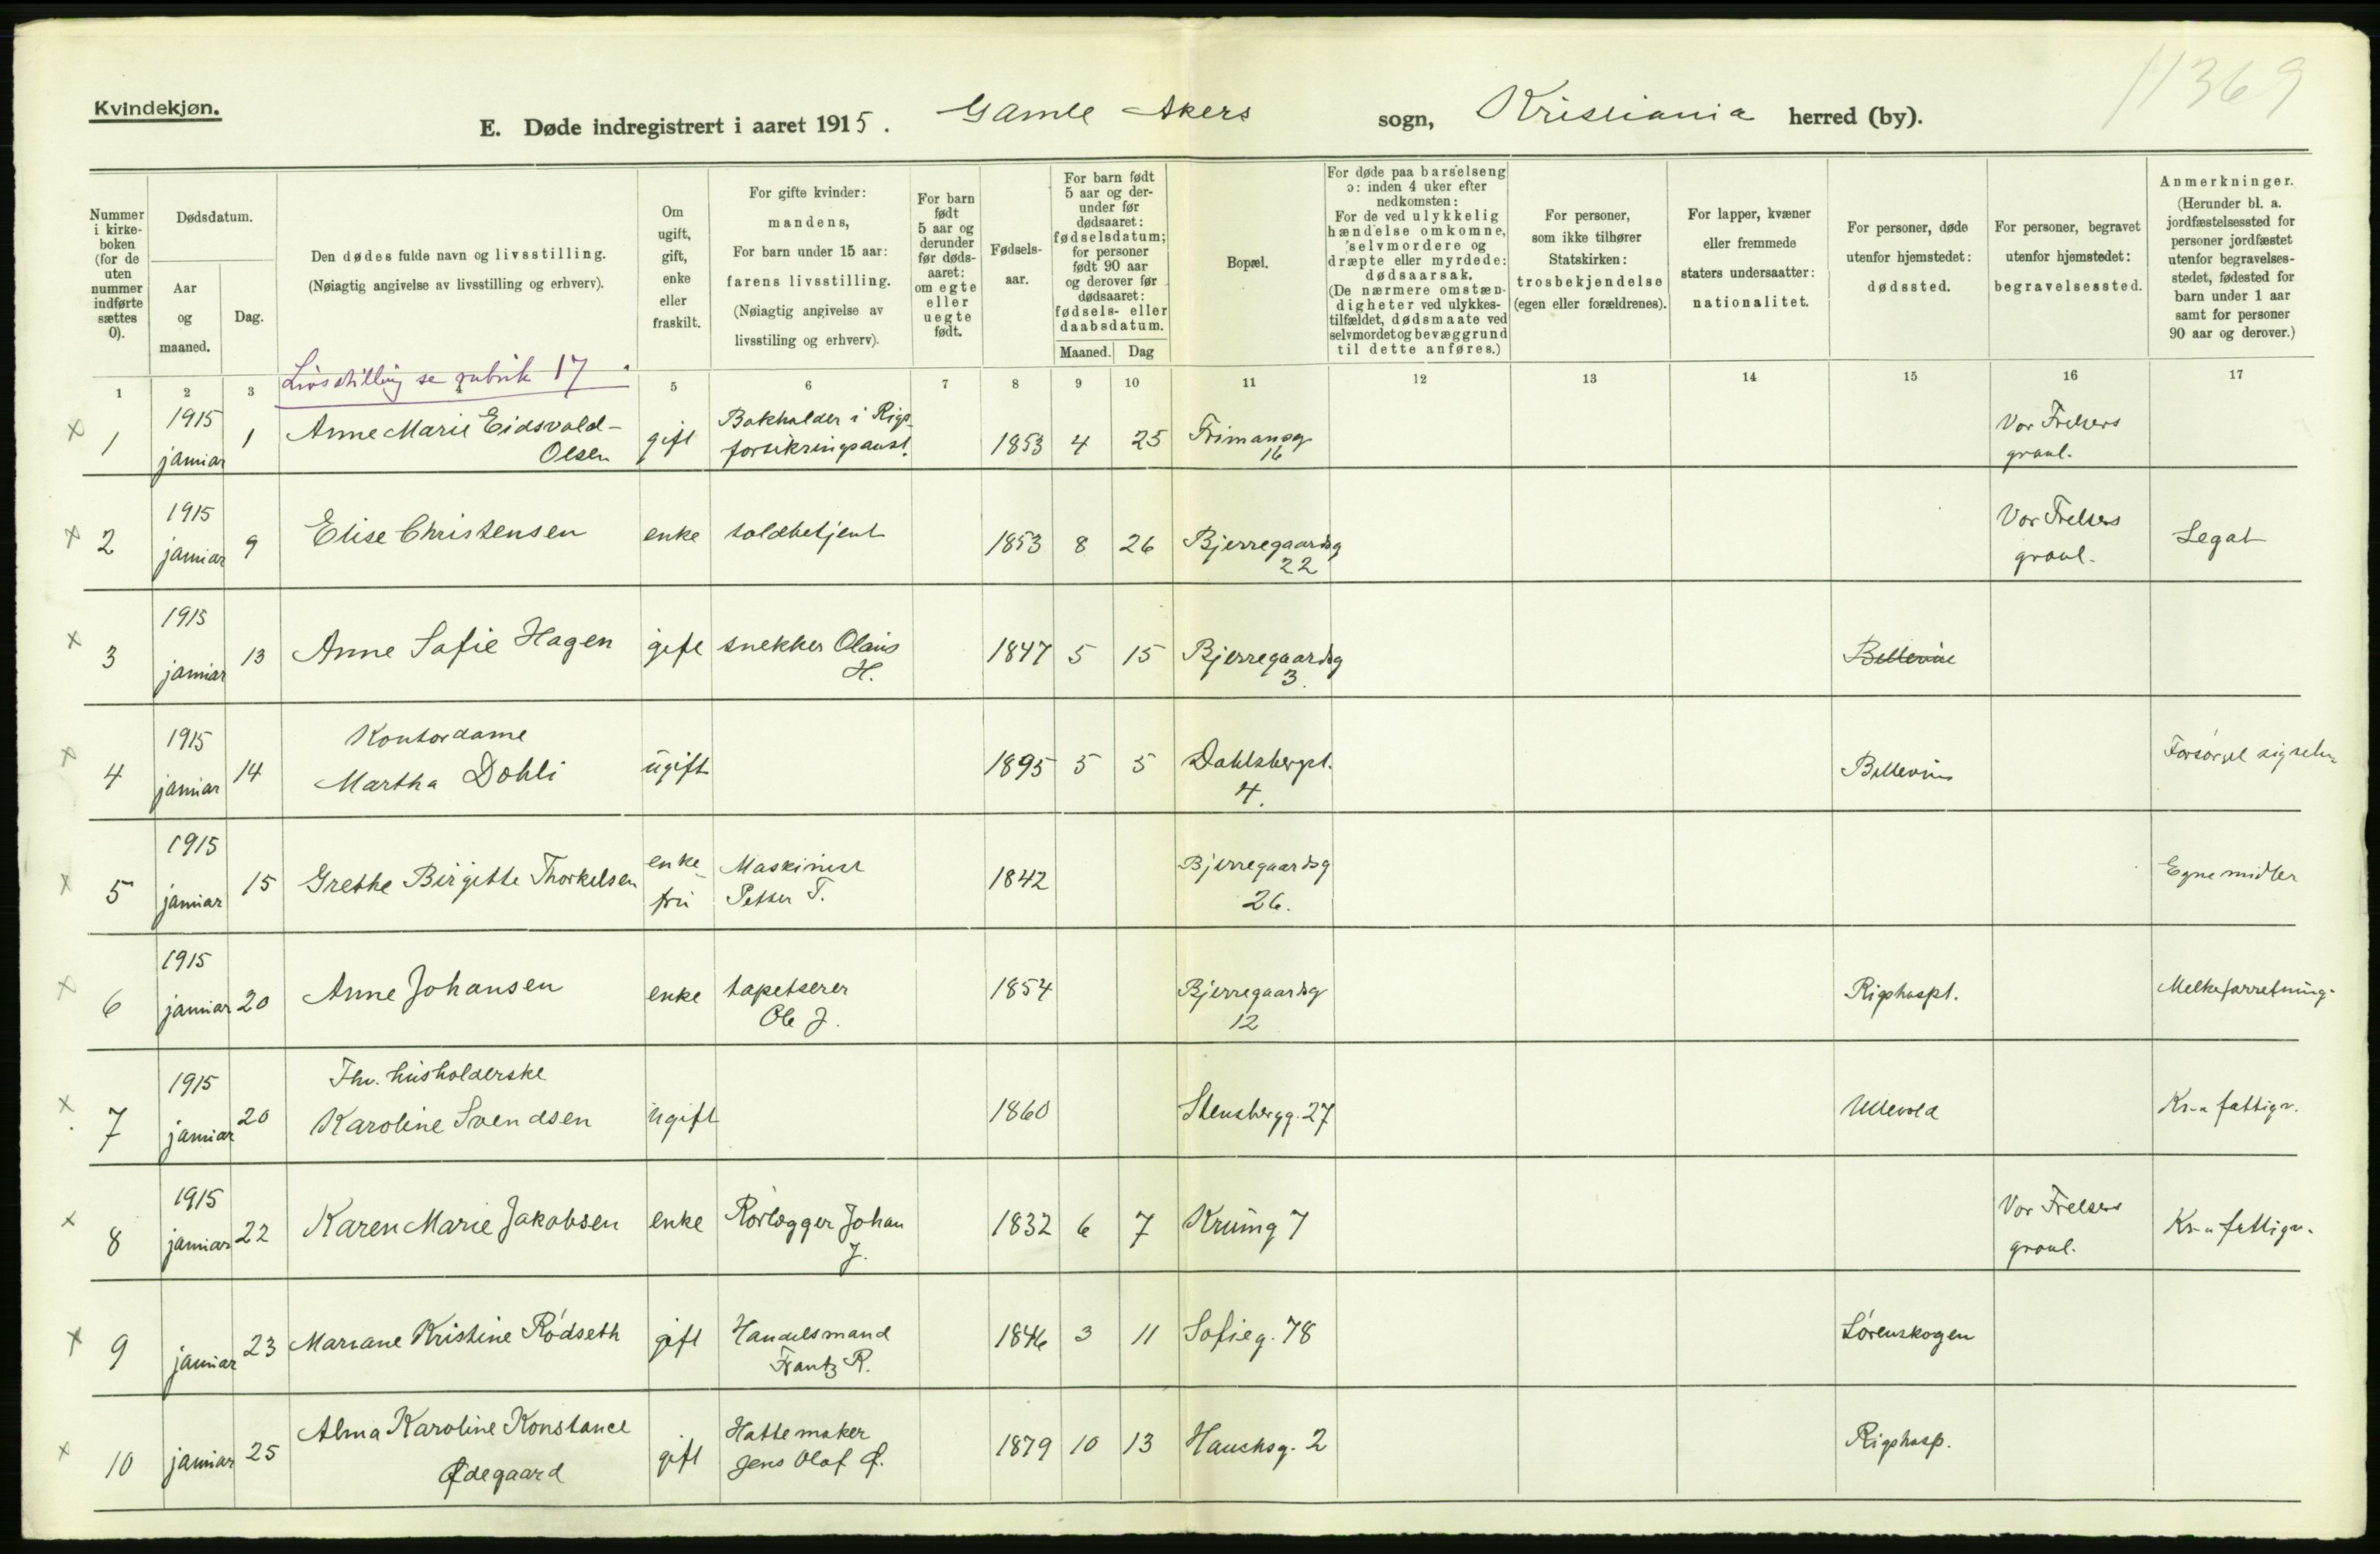 11369
Kvindekjøn.
E. Døde indregistrert i aaret 1915. Gamle Akers sogn, Kristiania herred (by).
Nummer i kirke-boken (for de uten nummer indførte sættes 0).
Dødsdatum.
Aar og maaned.
Dag.
Den dødes fulde navn og livsstilling.
(Nøiagtig angivelse av livsstilling og erhverv).
Livsstilling se rubrik 17
Om ugift, gift, enke eller fraskilt.
For gifte kvinder:
mandens,
For barn under 15 aar:
farens livsstilling.
(Nøiagtig angivelse av
livsstiling og erhverv).
For barn født 5 aar og derunder før døds-aaret: om egte eller uegte født.
Fødsels-aar.
For barn født 5 aar og der-under før dødsaaret: fødselsdatum; for personer født 90 aar og derover før dødsaaret: fødsels- eller daabsdatum.
Maaned. Dag
Bopæl.
For døde paa barselseng
ɔ: inden 4 uker efter
nedkomsten:
For de ved ulykkelig
hændelse omkomne,
selvmordere og
dræpte eller myrdede:
dødsaarsak.
(De nærmere omstæn-
digheter ved ulykkes-
tilfældet, dødsmaate ved
selvmordet og bevæggrund
til dette anføres.)
For personer,
som ikke tilhører
Statskirken:
trosbekjendelse
(egen eller forældrenes).
For lapper, kvæner
eller fremmede
staters undersaatter:
nationalitet.
For personer, døde
utenfor hjemstedet:
dødssted.
For personer, begravet
utenfor hjemstedet:
begravelsessted.
Anmerkninger.
(Herunder bl. a.
jordfæstelsessted for
personer jordfæstet
utenfor begravelses-
stedet, fødested for
barn under 1 aar
samt for personer
90 aar og derover.)
1 2 3 4 5 6 7 8 9 10 11 12 13 14 15 16 17
× 1 1915 januar 1 Anne Marie Eidsvold-Olsen gift Bokholder i Rigsforsikringsanst. 1853 4 25 Frimansg 16 Vor Frelsers gravl.
× 2 1915 januar 9 Elise Christensen enke toldbetjent 1853 8 26 Bjerregaardsg 22 Vor Frelsers gravl. Legat
× 3 1915 januar 13 Anne Sofie Hagen gift snekker Olaus H. 1847 5 15 Bjerregaardsg 3. Bellevue
× 4 1915 januar 14 Kontordame Martha Dohli ugift 1895 5 5 Dahlsbergst. 4. Bellevue Forsørget sig selv
× 5 1915 januar 15 Grethe Birgitte Thorkelsen enke-fru Maskinist Petter T. 1842 Bjerregaardsg 26. Egne midler
× 6 1915 januar 20 Anne Johansen enke tapetserer Ole J. 1854 Bjerregaardsg 12 Rigshospt. Melkeforretning.
× 7 1915 januar 20 Fhv. husholderske Karoline Svendsen ugift 1860 Stensbergg. 27 Ullevold Kr-a fattigv.
× 8 1915 januar 22 Karen Marie Jakobsen enke Rørlægger Johan J. 1832 6 7 Krumg 7 Vor Frelsers gravl. Kr-a fattigv.
× 9 januar 23 Mariane Kristine Rødseth gift Handelsmand Frantz R. 1846 3 11 Sofieg. 78 Lørenskogen
× 10 januar 25 Alma Karoline Konstance Ødegaard gift Hattemaker Jens Olaf Ø. 1879 10 13 Hauchsg. 2 Rigshosp.